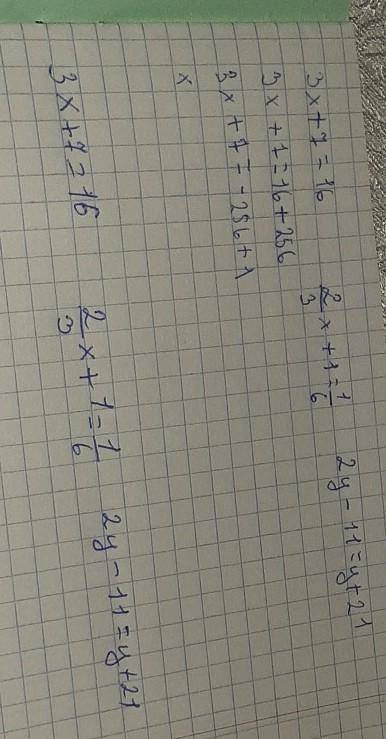 3x+7=16 2/3x+1=1/6 2y-11=y+21
3x+1=16+256
3x+7=-256+1
x
3x+7=16 2/3x+1=1/6 2y-11=y+21